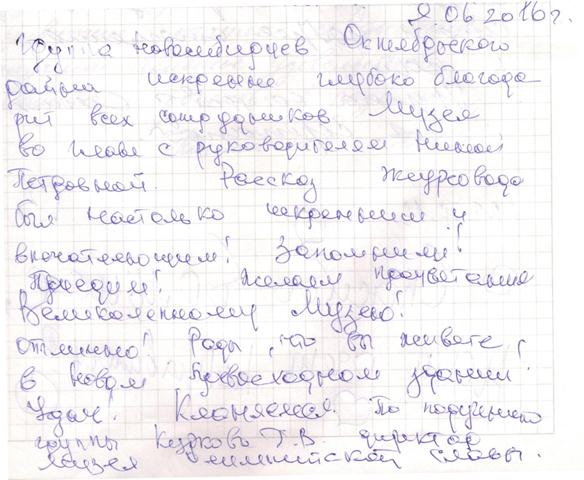 9.06.2016г.
Группа новосибирцев Октябрьского
района искренне глубоко благода-
рит всех сотрудников Музея
во главе с руководителем Ниной
Петровной. Рассказ экскурсовода
был настолько искренним и
впечатляющим! Запомним!
Приедим! Желаем процветания
Великолепному Музею!
Отлично! Рады, что вы живете
в новом превосходном здании!
Удач! Кланяемся. По поручению
группы Т.В. директор
Музея олимпийской славы.